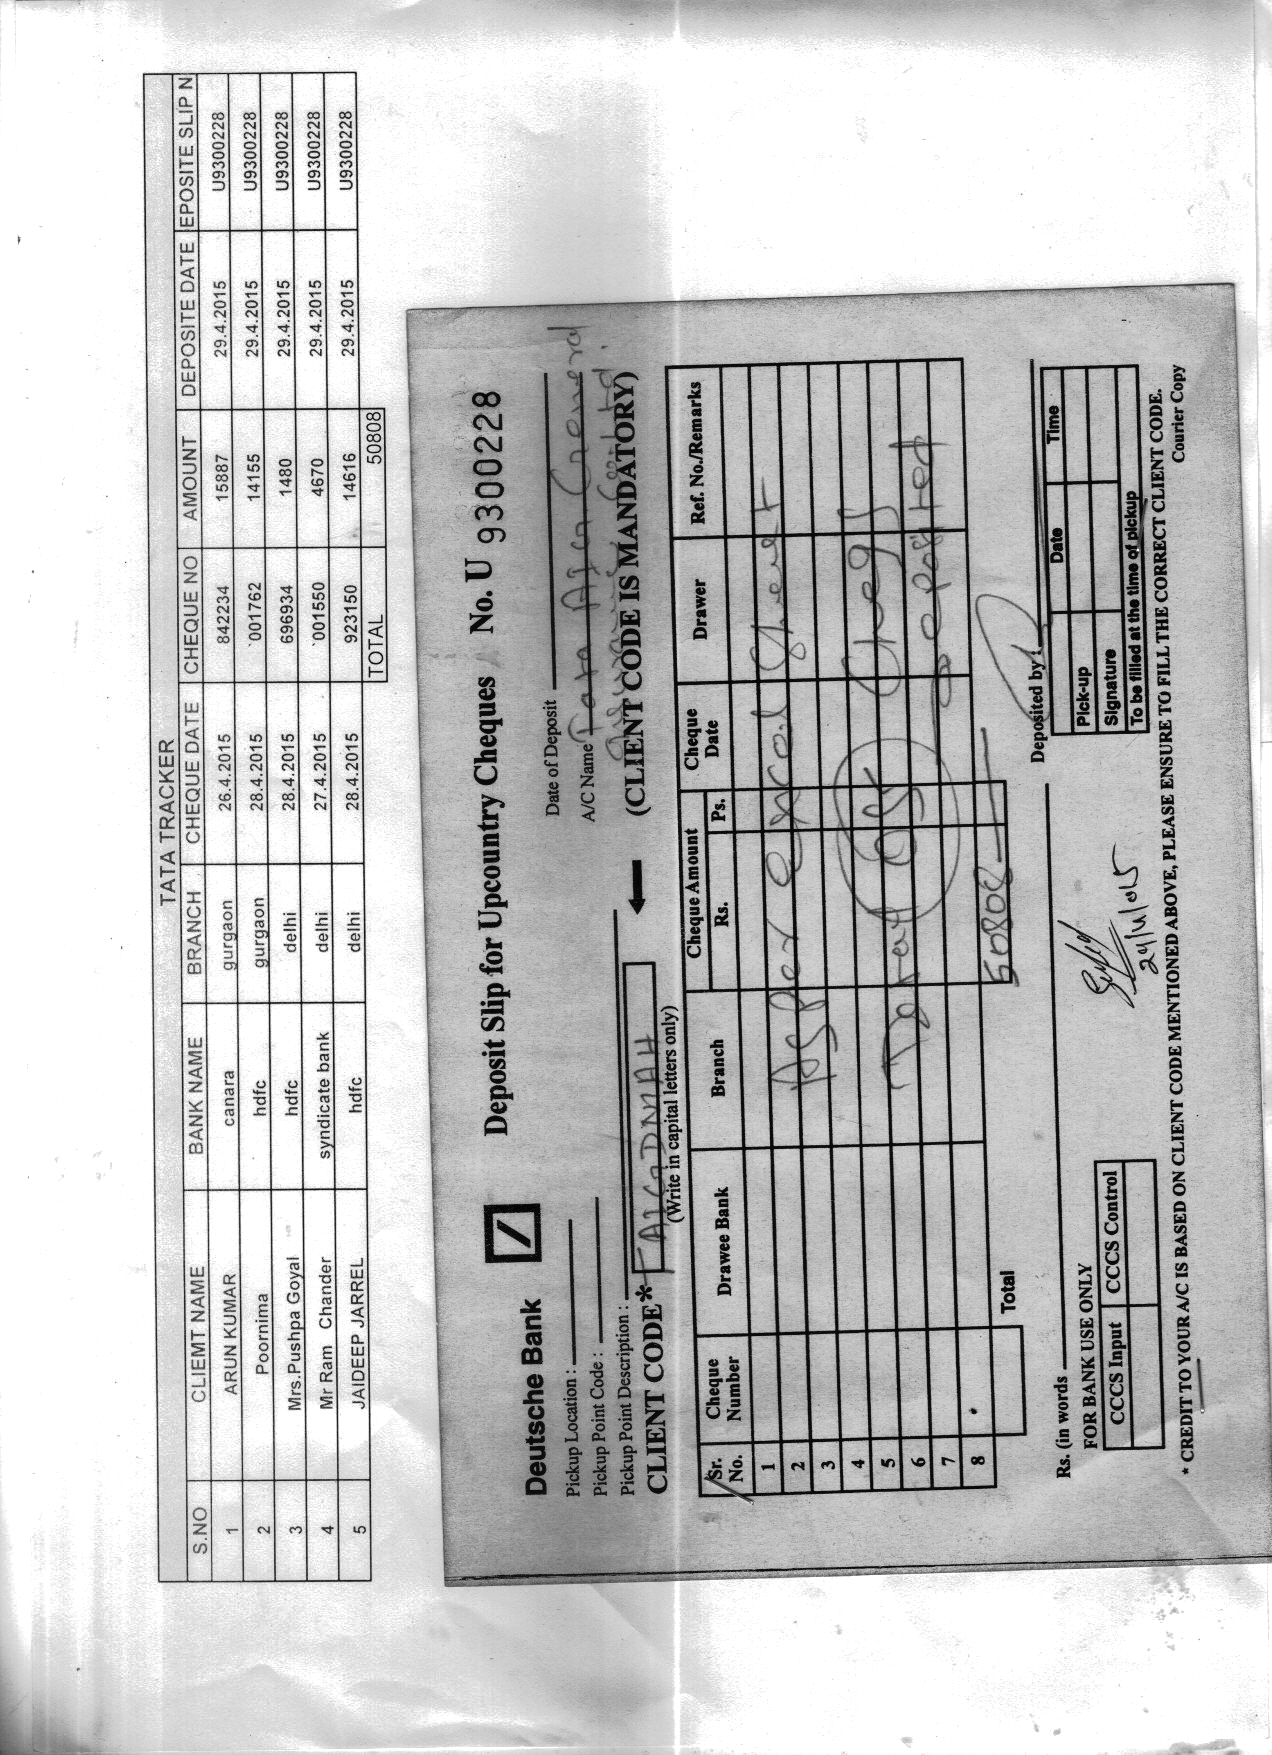 TATA TRACKER
S.NO CLIEMT NAME BANK NAME BRANCH CHEQUE DATE CHEQUE NO AMOUNT DEPOSITE DATE EPOSITE SLIP N
1 ARUN KUMAR canara gurgaon 26.4.2015 842234 15887 29.4.2015 U9300228
2 Poornima hdfc gurgaon 28.4.2015 `001762 14155 29.4.2015 U9300228
3 Mrs.Pushpa Goyal hdfc delhi 28.4.2015 696934 1480 29.4.2015 U9300228
4 Mr Ram Chander syndicate bank delhi 27.4.2015 `001550 4670 29.4.2015 U9300228
5 JAIDEEP JARREL hdfc delhi 28.4.2015 923150 14616 29.4.2015 U9300228
TOTAL 50808
Deutsche Bank Deposit Slip for Upcountry Cheques No. U 9300228
Pickup Location :
Date of Deposit
Pickup Point Code :
A/C Name Tata AIG General
Pickup Point Description :
CLIENT CODE* TAIGDMAH (CLIENT CODE IS MANDATORY)
(Write in capital letters only)
Sr. No. Cheque Number Drawee Bank Branch Cheque Amount Rs. Ps. Cheque Date Drawer Ref. No./Remarks
1
2 As Per Excel Sheet
3
4
5 Total 05 Cheqs
6 Deposited
7
8
Total 50808
Rs. (in words
Deposited by :
FOR BANK USE ONLY
CCCS Input CCCS Control
Date Time
Pick-up
Signature
To be filled at the time of pickup
* CREDIT TO YOUR A/C IS BASED ON CLIENT CODE MENTIONED ABOVE, PLEASE ENSURE TO FILL THE CORRECT CLIENT CODE.
Courier Copy